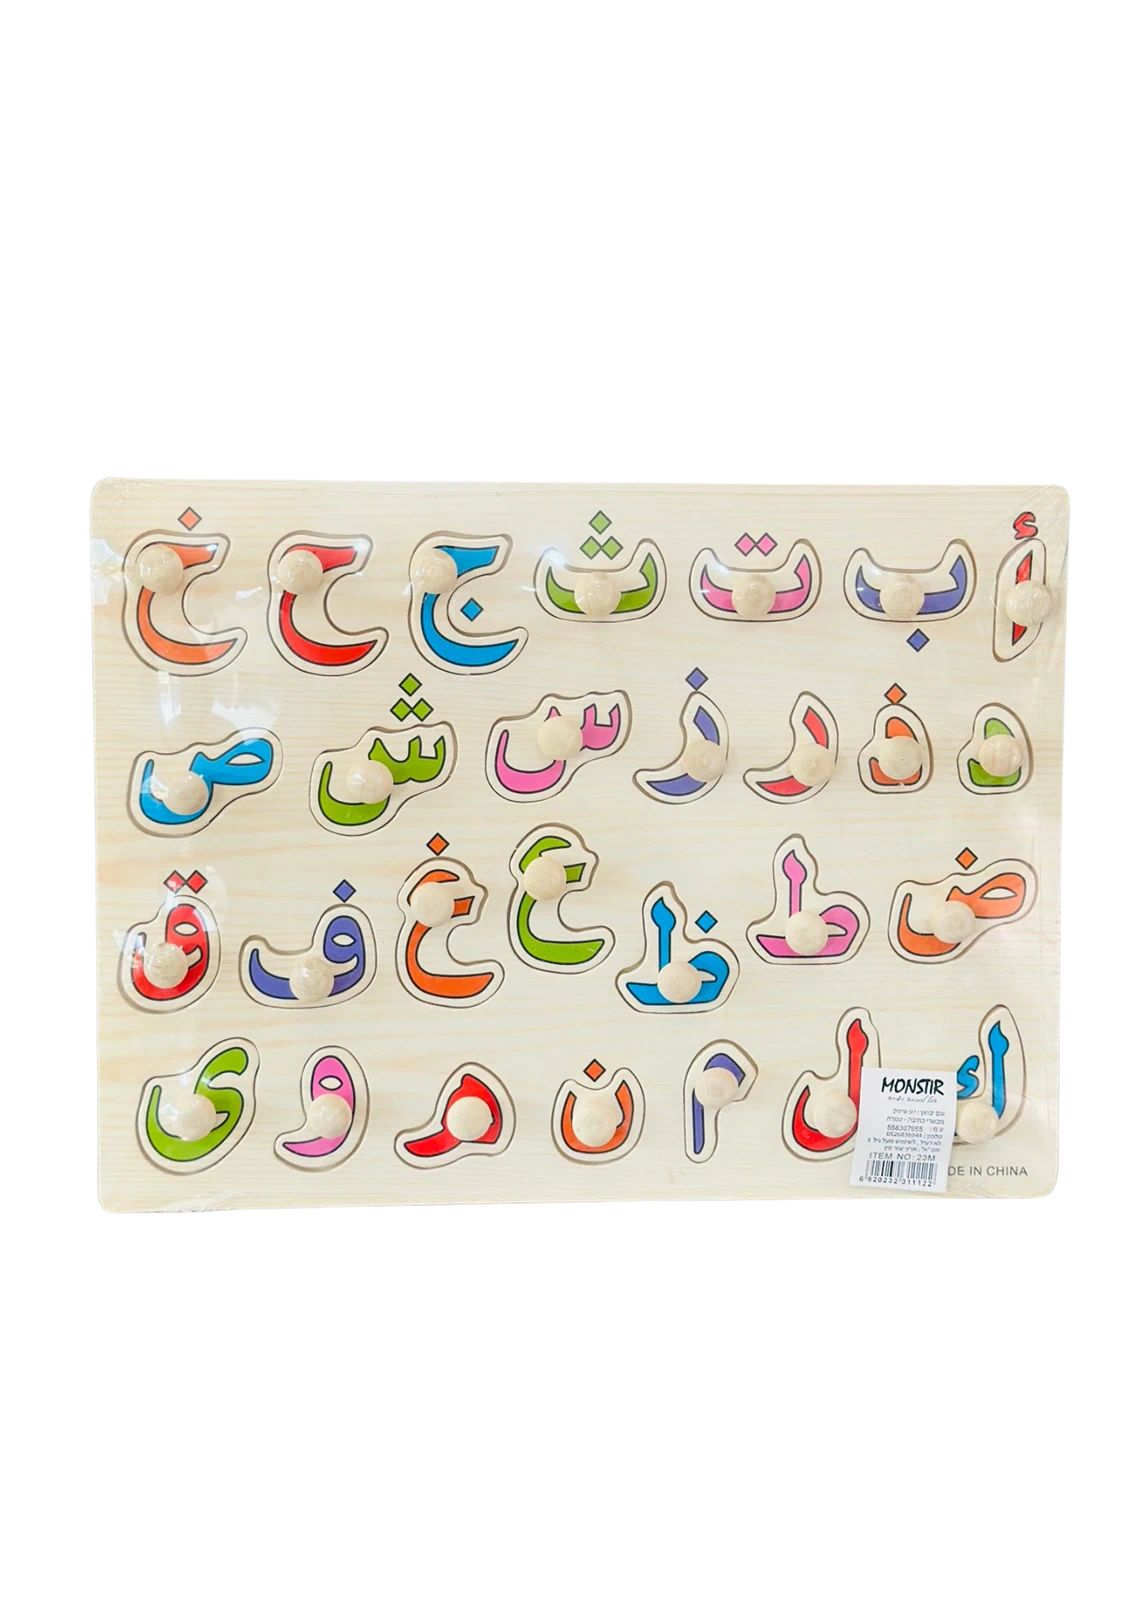 أ ب ت ث ج ح خ
د ذ ر ز س ش ص
ض ط ظ ع غ ف ق
ك ل م ن ه و ى
MONSTIR
ע.מ: 558307955
טלפון: 0526836944
ITEM NO: 23M
6 920232 311122
DE IN CHINA